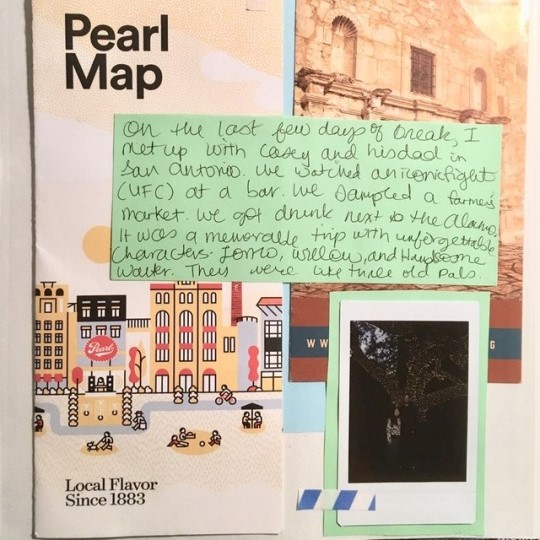 Pearl
Map
On the last few days of break, I
met up with Casey and his dad in
San Antonio. We watched an iconic fight
(UFC) at a bar. We sampled a farmer's
market. We got drunk next to the Alamo.
It was a memorable trip with unforgettable
characters: Willow, and Handsome
Walter. They were like three old pals.
Pearl
WW
G
Local Flavor
Since 1883